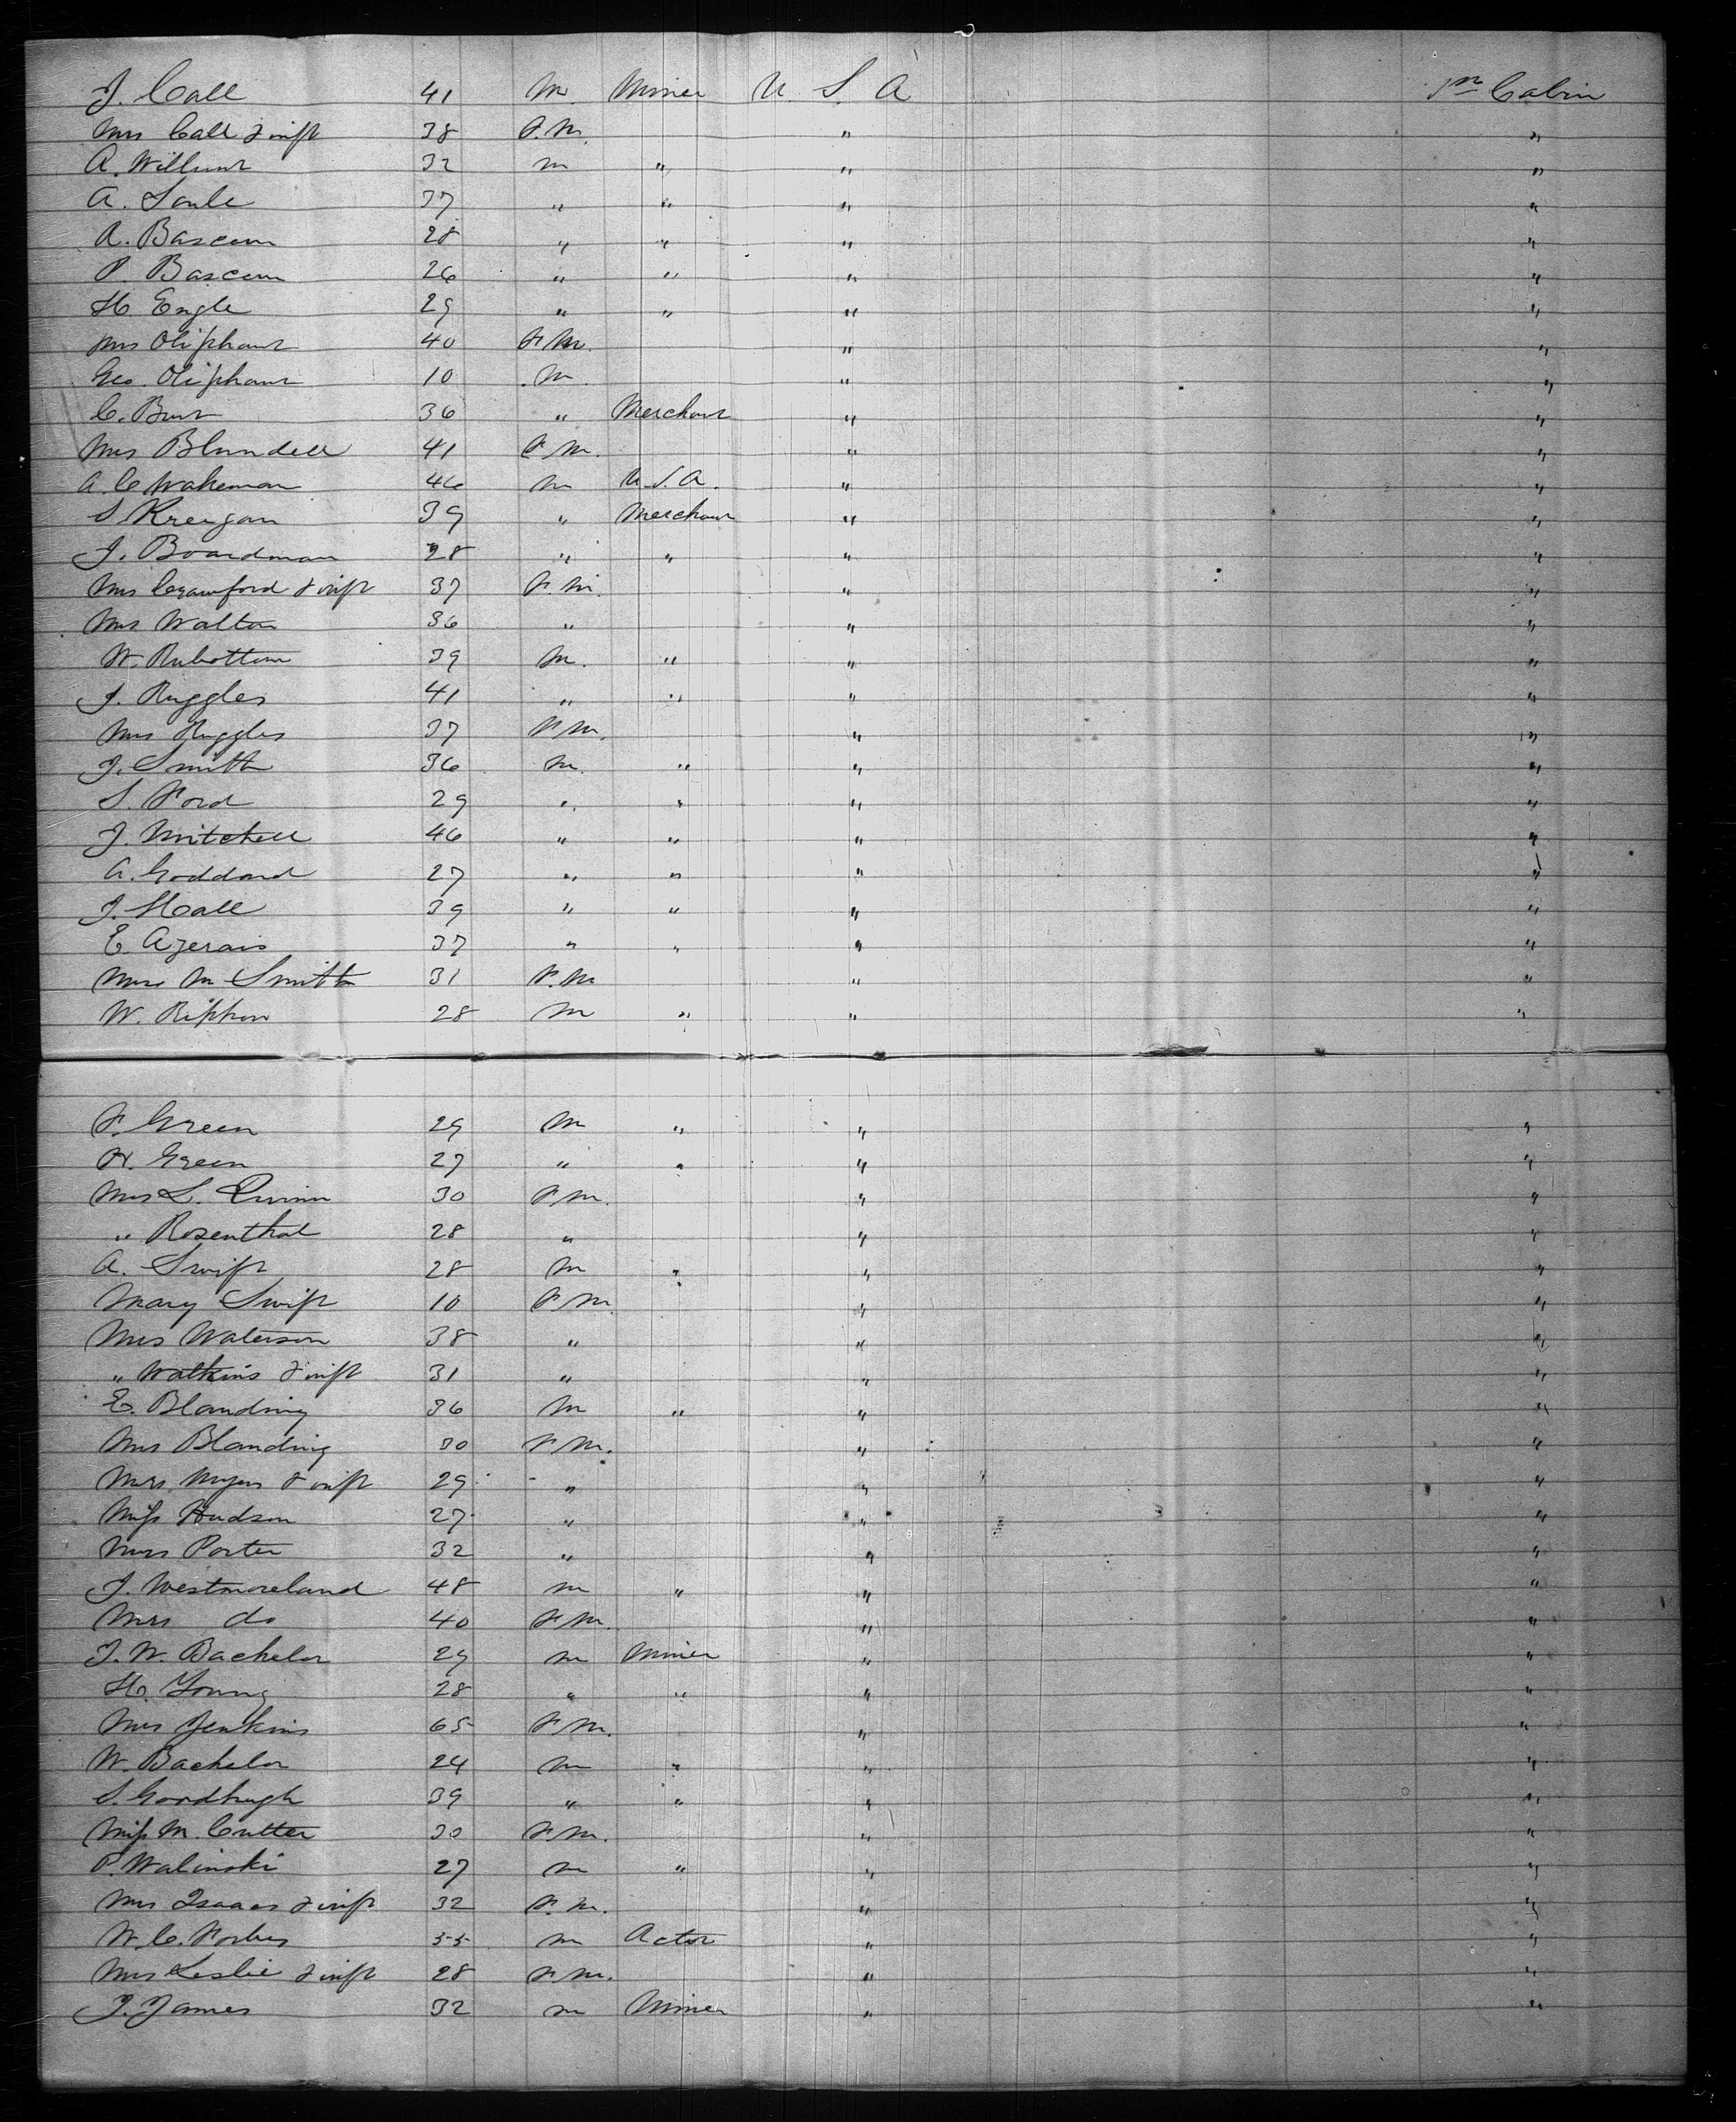 J. Call 41 M. Miner U. S. A 1st Cabin
Mrs Call & inft 38 F.M. " "
A. Willunt 32 M " " "
A. Soule 37 " " " "
A. Bascom 28 " " " "
P. Bascom 26 " " " "
H. Engle 29 " " " "
Mrs Oliphant 40 F.M. " "
Geo. Oliphant 10 M. " "
C. Burt 36 " Merchant " "
Mrs Blundell 41 F.M. " "
A. C Wakeman 46 M U.S.A. " "
S Kreigan 39 " Merchant " "
J. Boardman 28 " " " "
Mrs Crawford & inft 37 F.M. " "
Mrs Walton 36 " " "
W. Rubottom 39 M. " " "
J. Ruggles 41 " " " "
Mrs Ruggles 37 F.M. " "
J. Smith 36 M. " " "
S. Ford 29 " " " "
J. Mitchell 46 " " " "
A. Goddard 27 " " " "
J. Hall 39 " " " "
E. Azerais 37 " " " "
Mrs M Smith 31 F.M " "
W. Rippon 28 M " " "
F. Green 29 M " " "
H. Green 27 " " " "
Mrs L. Quinn 30 F.M. " "
" Rosenthal 28 " " "
A. Swift 28 M " " "
Mary Swift 10 F.M. " "
Mrs Waterson 38 " " "
" Watkins & inft 31 " " "
E. Blanding 36 M " " "
Mrs Blanding 30 F.M. " "
Mrs. Myers & inft 29 " " "
Miss Hudson 27 " " "
Mrs Porter 32 " " "
J. Westmoreland 48 M " " "
Mrs do 40 F.M. " "
J. W. Bachelor 29 M Miner " "
H. Young 28 " " " "
Mrs Jenkins 65 F.M. " "
W. Bachelor 24 M " " "
S. Goodhugh 39 " " " "
Miss M. Cutter 30 F.M. " "
P. Walinski 27 M " " "
Mrs Isaacs & inft 32 F.M. " "
W. C. Forbes 55 M Actor " "
Mrs Leslie & inft 28 F.M. " "
J. James 32 M Miner " "